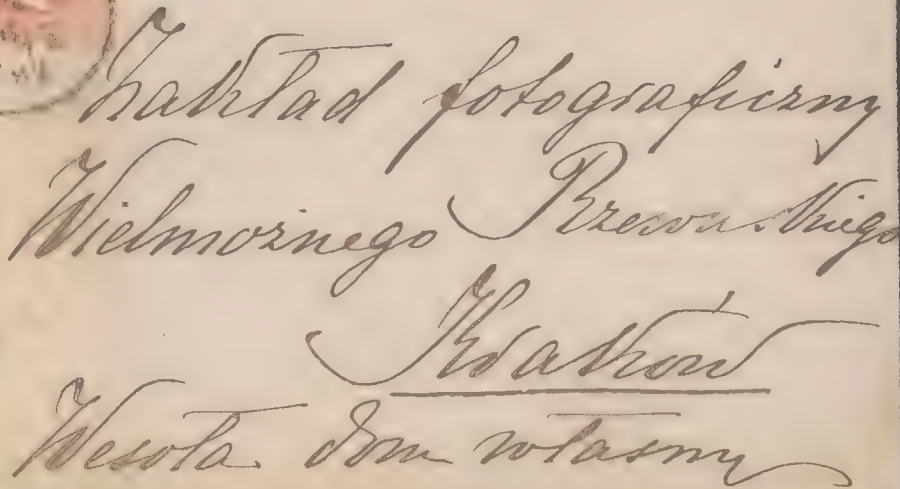 Zakład fotograficzny
Wielmożnego Rzewuskiego
Kraków
Wesoła dom własny